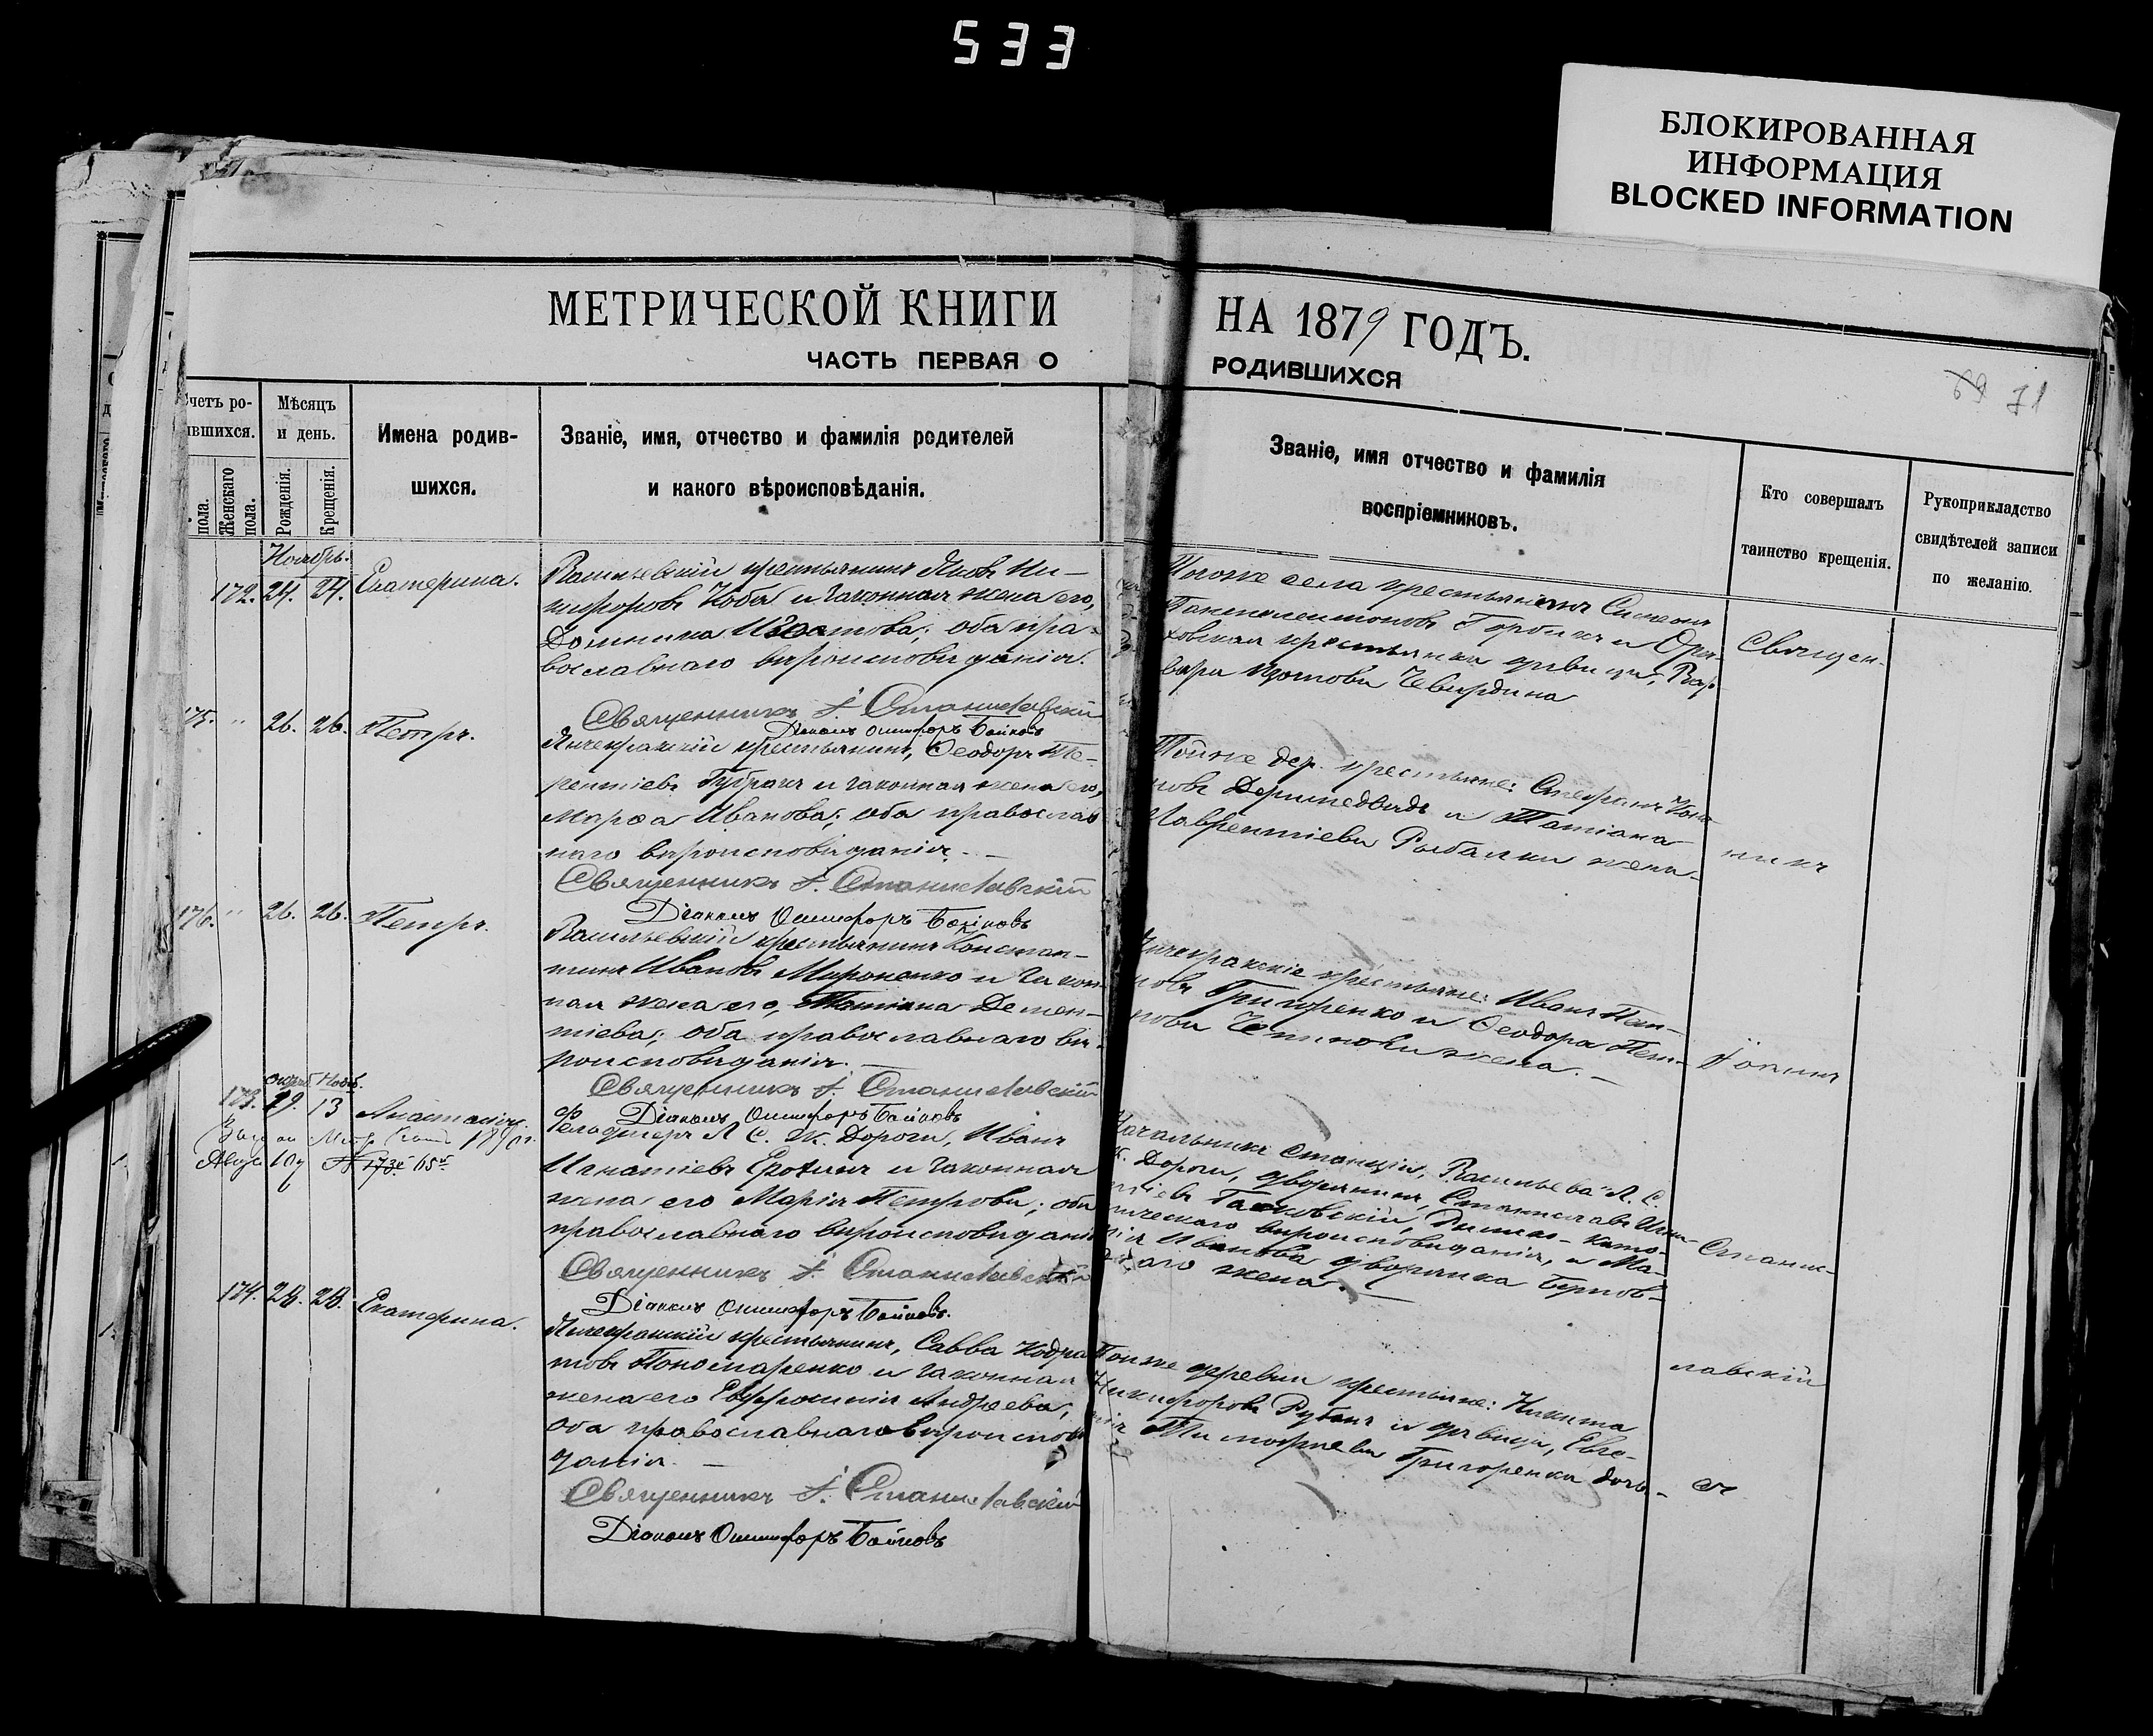 533
БЛОКИРОВАННАЯ
ИНФОРМАЦИЯ
BLOCKED INFORMATION
МЕТРИЧЕСКОЙ КНИГИ
НА 1879 ГОДЪ.
ЧАСТЬ ПЕРВАЯ О
РОДИВШИХСЯ
69 71
четъ ро-
вшихся.
пола.
Женскаго
пола.
Мѣсяцъ
и день.
Рожденія.
Крещенія.
Имена родив-
шихся.
Званіе, имя, отчество и фамилія родителей
и какого вѣроисповѣданія.
Званіе, имя отчество и фамилія
воспріемниковъ.
Кто совершалъ
таинство крещенія.
Рукоприкладство
свидѣтелей записи
по желанію.
Ноябрь.
172. 24. 24. Екатерина.
Васильевскій крестьянинъ Яковъ Ни-
кифоровъ Коба и законная жена его,
Домника; оба пра-
вославнаго вѣроисповѣданія.
Священникъ І. Станиславскій
Діаконъ Онисифоръ Бойковъ
Тогоже села крестьянинъ Симеонъ
Пантелеимоновъ Горбикъ и
крестьянка дѣвица, Вар-
вара
175. " 26. 26. Петръ.
крестьянинъ, Ѳеодоръ Те-
рентіевъ и законная жена его,
Марѳа Иванова; оба православ
наго вѣроисповѣданія. —
Священникъ І. Станиславскій
Діаконъ Онисифоръ Бойковъ
Тойже дер. крестьяне: Стефанъ
новъ и Татіана
Лаврентіева Рыбалки жена.
176. " 26. 26. Петръ.
Васильевскій крестьянинъ Констан-
тинъ Ивановъ Мироненко и закон
ная жена его, Татіана Демен-
тіева; оба православнаго вѣ-
роисповѣданія. —
Священникъ І. Станиславскій
Діаконъ Онисифоръ Бойковъ
крестьяне: Иванъ Пет-
ровъ Григоренко и Ѳеодора Пет-
рова жена. —
Октяб. Нояб.
173. 29. 13 Анастасія.
Фельдшеръ Л. С. Ж. Дороги, Иванъ
Игнатіевъ Ерохинъ и законная
жена его Марія Петрова; оба
православнаго вѣроисповѣданія
Священникъ І. Станиславскій
Діаконъ Онисифоръ Бойковъ.
Начальникъ Станціи, Васильева Л. С.
Ж. Дороги, дворянинъ, Станиславъ Игна-
тіевъ Римско-като-
лическаго вѣроисповѣданія, и Ма-
рія Иванова дворянка
жена. —
174. 28. 28. Екатерина.
крестьянинъ, Савва Кодра
товъ Пономаренко и законная
жена его Евфросинія Андреева;
оба православнаго вѣроисповѣ
данія. —
Священникъ І. Станиславскій
Діаконъ Онисифоръ Бойковъ
Тойже деревни крестьяне: Никита
Никифоровъ Рубанъ и дѣвица, Евге-
нія Тимофеева Григоренка дочь. —
Священ-
никъ
Іоаннъ
Станис-
лавскій